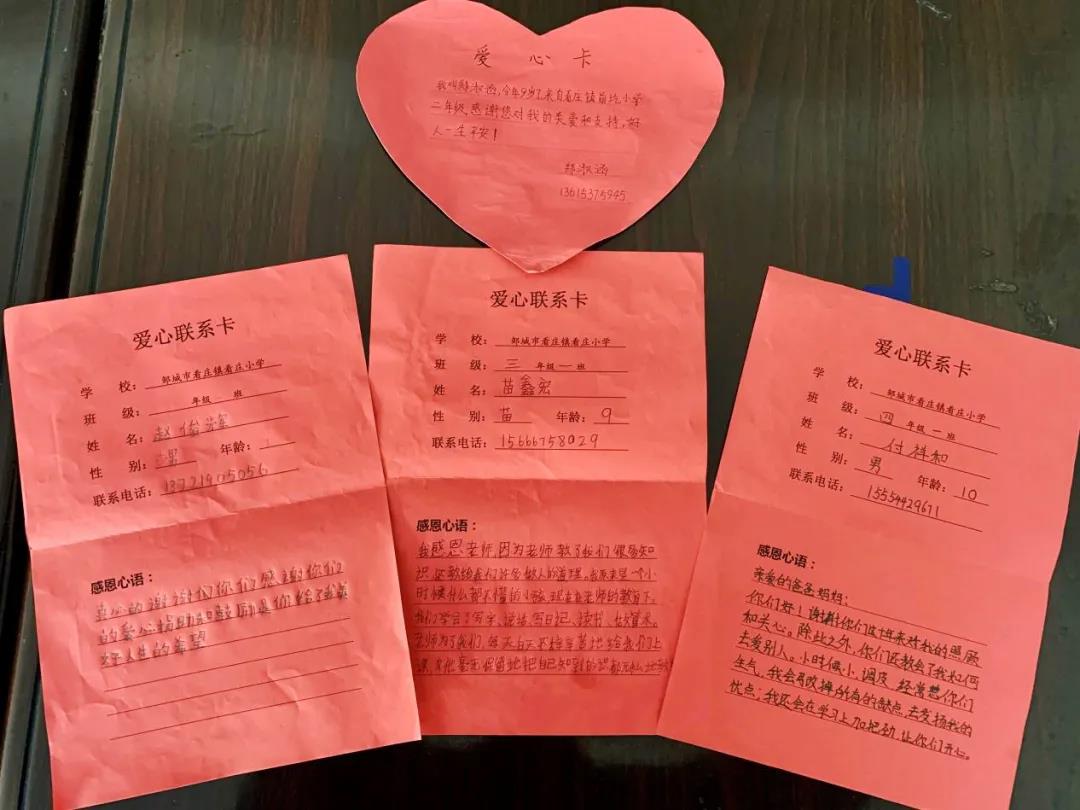 爱 心 卡
我叫郑淑涵,今年9岁,来自看庄镇前圪小学
二年级,感谢您对我的关爱和支持,好
人一生平安!
郑淑涵
13615375945
爱心联系卡
学 校:邹城市看庄镇看庄小学
班 级: 年级 班
姓 名:赵俊
性 别:男 年龄:
联系电话:13721905056
感恩心语:
真心的谢谢们你们感谢你们
的爱心捐助和鼓励是你给了我美
好人生的希望
爱心联系卡
学 校:邹城市看庄镇看庄小学
班 级:三年级一班
姓 名:苗鑫宏
性 别:苗 年龄:9
联系电话:15666758029
感恩心语:
我感恩老师,因为老师教了我们很多知
识,还教给我们许多做人的道理。我原来是一个小
时候什么都不懂的小孩,现在在老师的教育下,
我们学会了写字、说话、写日记、读书、做算术。
老师为了我们,每天白天不惜辛苦地给我们上
课,老师毫无保留地把自己知道的知识都无私地
爱心联系卡
学 校:邹城市看庄镇看庄小学
班 级:四年级一班
姓 名:付祥和
性 别:男 年龄:10
联系电话:15554429671
感恩心语:
亲爱的爸爸妈妈:
你们好!谢谢你们这十年来对我的照顾
和关心。除此之外,你们还教会了我如何
去爱别人。小时候小,调皮,经常惹你们
生气,我会改掉所有的缺点,去发扬我的
优点;我还会在学习上加把劲,让你们开心。